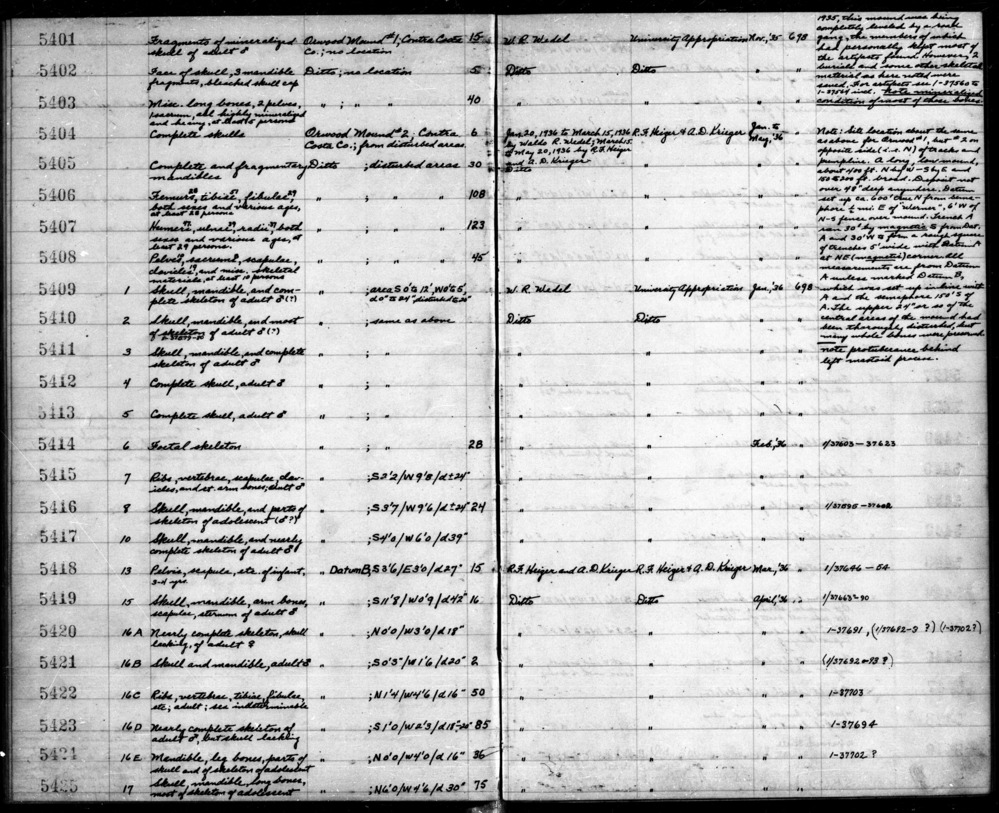 5401 Fragments of mineralized Orwood Mound #1, Contra Costa 15 W. R. Wedel University Appropriation Nov., '35 698
skull of adult ♂ Co.; no location
5402 Face of skull, 3 mandible Ditto; no location 5 Ditto Ditto " "
fragments, bleached skull cap
5403 Misc. long bones, 2 pelves, " ; " " 40 " " " "
1 sacrum, all highly mineralized
and heavy, at least 5 persons
5404 Complete skulls Orwood Mound #2, Contra 6 Jan. 20, 1936 to March 15, 1936 R. F. Heizer & A. D. Krieger Jan. to "
Costa Co.; from disturbed areas by Waldo R. Wedel; March 15 May, '36
to May 20, 1936 by R. F. Heizer
and A. D. Krieger
5405 Complete and fragmentary Ditto ; disturbed areas 30 Ditto " " "
mandibles
5406 Femurs, tibiae, fibulae, " ; " " 108 " " " "
both sexes and various ages,
at least 28 persons
5407 Humeri, ulnae, radii, both " ; " " 123 " " " "
sexes and various ages, at
least 29 persons.
5408 Pelves, sacrums, scapulae, " ; " " 45 " " " "
clavicles, and misc. skeletal
materials, at least 10 persons
5409 1 Skull, mandible, and com- " ; area S 0 to 12' W 0 to 5', W. R. Wedel University Appropriation Jan., '36 698
plete skeleton of adult ♂(?) d 0" to 24" disturbed to 20"
5410 2 Skull, mandible, and most " ; same as above Ditto Ditto " "
of skeleton of adult ♂(?)
5411 3 Skull, mandible, and complete " ; " " " " "
skeleton of adult ♂
5412 4 Complete skull, adult ♂ " ; " " " " "
5413 5 Complete skull, adult ♂ " ; " " " " "
5414 6 Foetal skeleton " ; " 28 " " Feb., '36 " 1/37603 — 37623
5415 7 Ribs, vertebrae, scapulae, cla- " ; S 2'2/W 9'8/d ± 24" " " " "
vicles, and rt. arm bones; adult ♂
5416 8 Skull, mandible, and parts of " ; S 3'7/W 9'6/d ± 24" 24 " " " " 1/37595 — 37602
skeleton of adolescent (♂?)
5417 10 Skull, mandible, and nearly " ; S 4'0/W 6'0/d 39" " " " "
complete skeleton of adult ♂
5418 13 Pelvis, scapula, etc. of infant, " Datum B; S 3'6/E 3'0/d 27" 15 R. F. Heizer and A. D. Krieger R. F. Heizer & A. D. Krieger Mar., '36 " 1/37646 — 54
3-4 yrs
5419 15 Skull, mandible, arm bones, " ; S 11'8/W 0'9/d 42" 16 Ditto Ditto April, '36 " 1/37663-90
scapulae, sternum of adult ♂
5420 16 A Nearly complete skeleton, skull " ; N 0'0/W 3'0/d 18" " " " " 1-37691, (1/37682-3 ?) (1-37702?)
lacking, of adult ♀
5421 16 B Skull and mandible, adult ♂ " ; S 0'3"/W 1'6/d 20" 2 " " " " (1/37692-93 ?)
5422 16 C Ribs, vertebrae, tibiae, fibulae, " ; N 1'4/W 4'6/d 16" 50 " " " " 1-37703
etc; adult; sex indeterminable
5423 16 D Nearly complete skeleton of " ; S 1'0/W 2'3/d 18-20" 85 " " " " 1-37694
adult ♂, but skull lacking
5424 16 E Mandible, leg bones, parts of " ; N 0'0/W 4'0/d 16" 36 " " " " 1-37702 ?
skull and of skeleton of adolescent
5425 17 Skull, mandible, long bones, " ; N 6'0/W 4'6/d 30" 75 " " " "
most of skeleton of adolescent
1935, this mound was being
completely leveled by a road
gang, the members of which
had personally kept most of
the artifacts found. However, 2
burials and some other skeletal
material as here noted were
saved. For artifacts see 1-37560 to
1-37564 incl. Note mineralized
condition of most of these bones.
Note: Site location about the same
as above for Orwood #1, but #2 on
opposite side (i.e. N) of tracks and
pumpline. A long, low mound,
about 400 ft. N by W – S by E and
150 to 200 ft. broad. Deposit not
over 48" deep anywhere. Datum
set up ca. 600' due N from sema-
phore ½ mi. E of "Werner", 6' W of
N-S fence over mound. Trench A
ran 30' by magnetic S from Dat.
A and 30' W to form a rough square
of trenches 5' wide with Datum A
at NE (magnetic) corner. All
measurements are from Datum
A unless marked Datum B,
which was set up in line with
A and the semaphore 150' S of
A. The upper 24" or so of the
central areas of the mound had
been thoroughly disturbed, but
many whole bones were preserved.
note protuberance behind
left mastoid process.